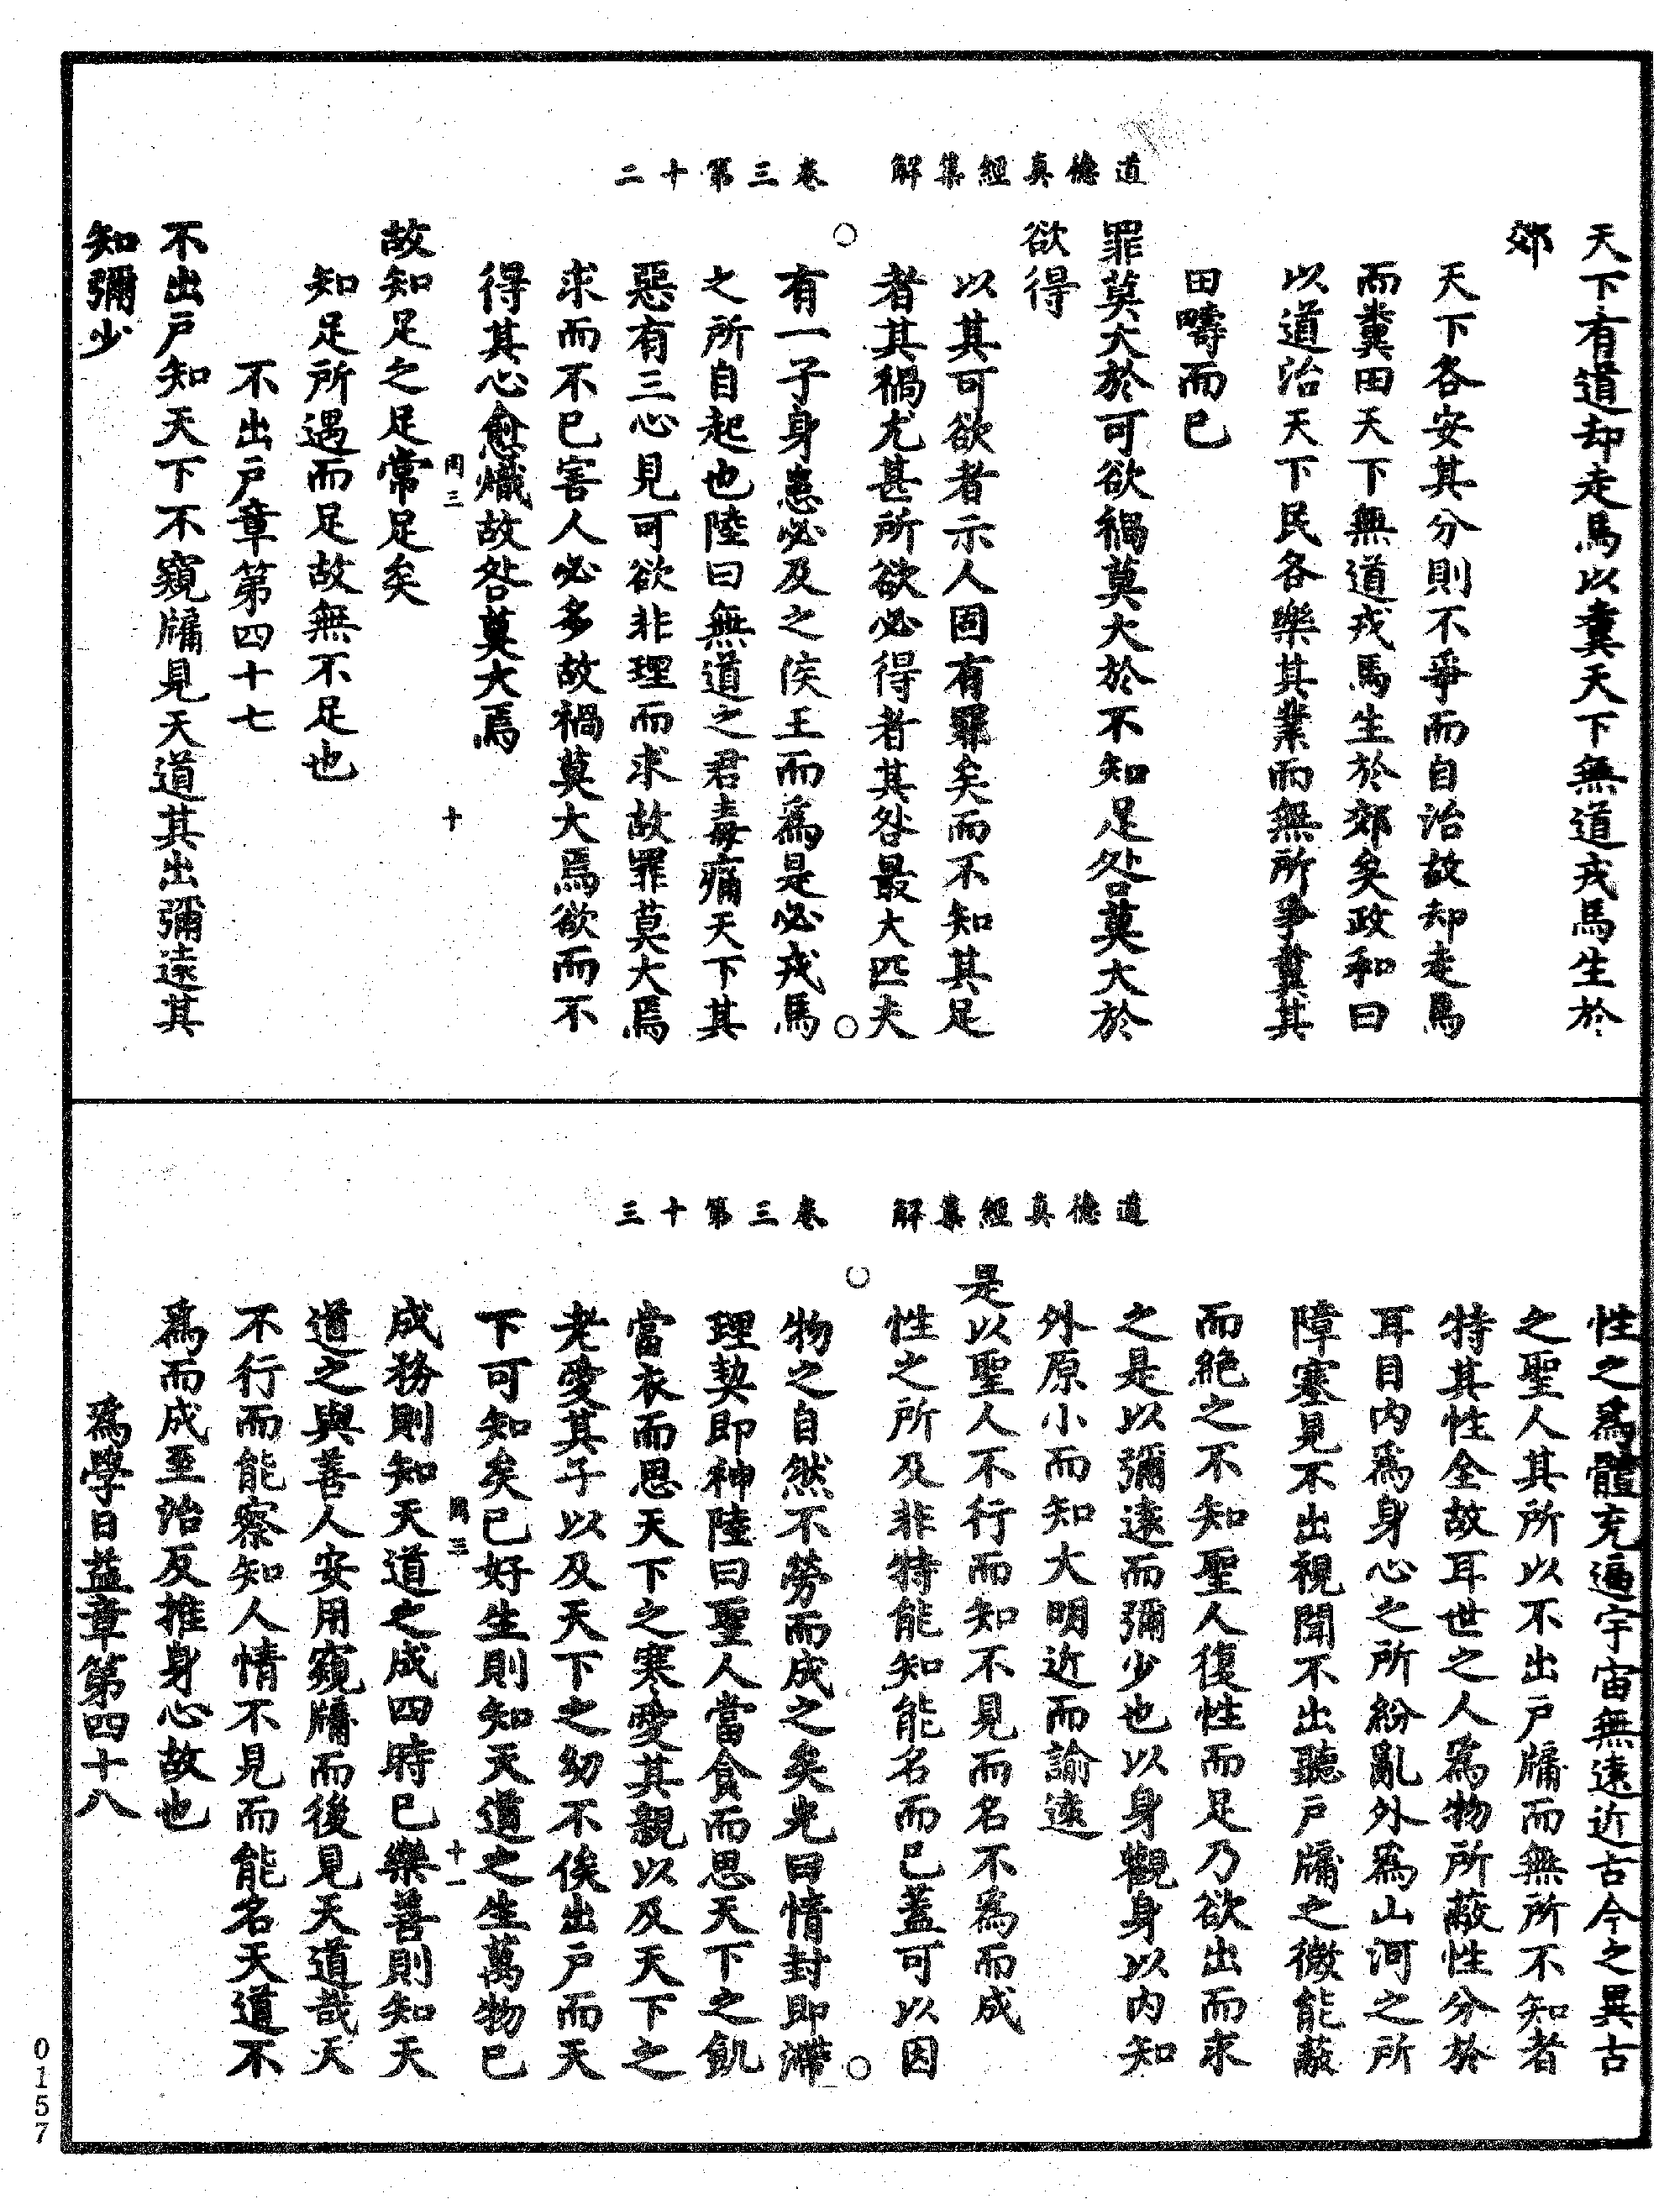 道德真經集解　卷三第十二
天下有道却走馬以糞天下無道戎馬生於
郊
天下各安其分則不爭而自治故却走馬
而糞田天下無道戎馬生於郊矣政和曰
以道治天下民各樂其業而無所爭糞其
田疇而已
罪莫大於可欲禍莫大於不知足咎莫大於
欲得
以其可欲者示人固有罪矣而不知其足
者其禍尤甚所欲必得者其咎最大匹夫
有一于身患必及之侯王而爲是必戎馬
之所自起也陸曰無道之君毒痛天下其
惡有三心見可欲非理而求故罪莫大焉
求而不已害人必多故禍莫大焉欲而不
得其心愈熾故咎莫大焉
周三　十
故知足之足常足矣
知足所遇而足故無不足也
不出戶章第四十七
不出戶知天下不窺牖見天道其出彌遠其
知彌少
道德真經集解　卷三第十三
性之爲體充遍宇宙無遠近古今之異古
之聖人其所以不出戶牖而無所不知者
特其性全故耳世之人爲物所蔽性分於
耳目內爲身心之所紛亂外爲山河之所
障塞見不出視聞不出聽戶牖之微能蔽
而絕之不知聖人復性而足乃欲出而求
之是以彌遠而彌少也以身觀身以內知
外原小而知大明近而諭遠
是以聖人不行而知不見而名不為而成
性之所及非特能知能名而已蓋可以因
物之自然不勞而成之矣光曰情封即滯
理契即神陸曰聖人當食而思天下之飢
當衣而思天下之寒愛其親以及天下之
老愛其子以及天下之幼不俟出戶而天
下可知矣已好生則知天道之生萬物已
周三　十一
成務則知天道之成四時已樂善則知天
道之與善人安用窺牖而後見天道哉夫
不行而能察知人情不見而能名天道不
爲而成至治反推身心故也
爲學日益章第四十八
0157